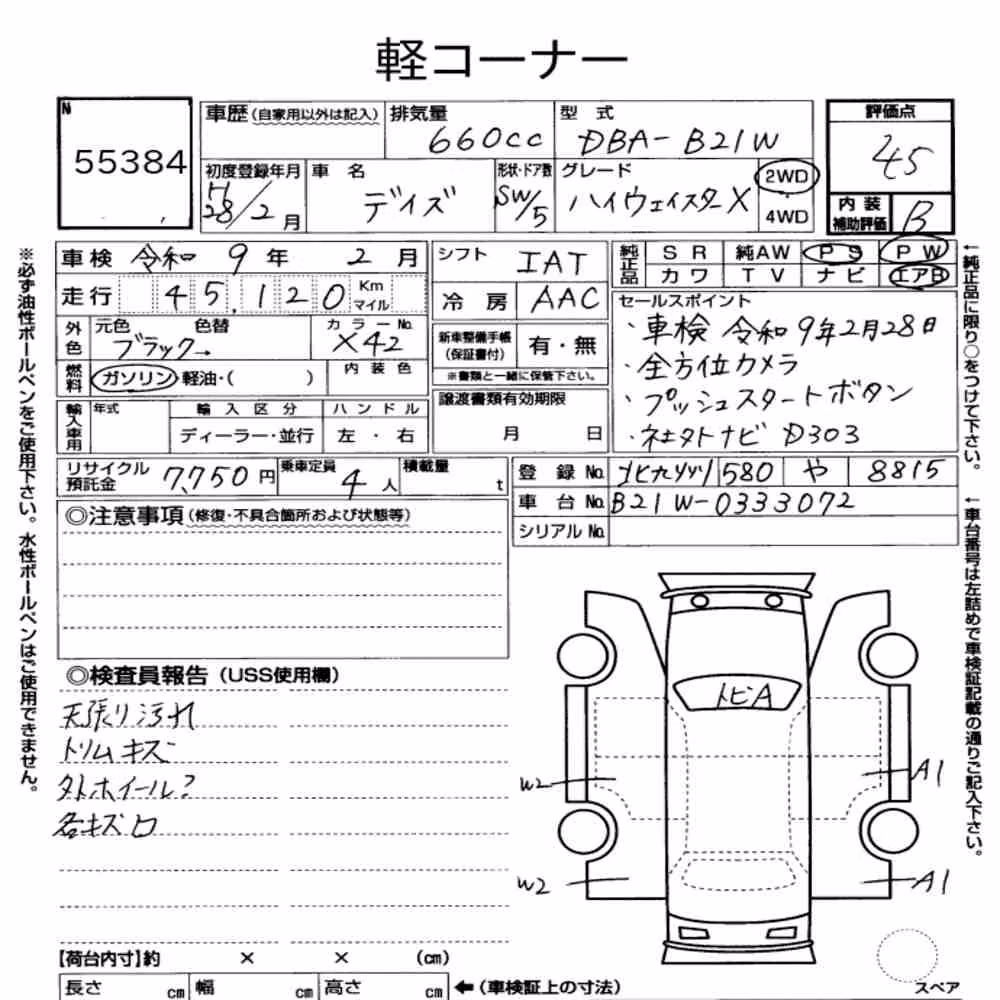 軽コーナー
N
55384
車歴(自家用以外は記入)
排気量 660cc
型式 DBA-B21W
評価点 45
初度登録年月 H28/2月
車名 デイズ
形状・ドア数 SW/5
グレード ハイウェイスターX
2WD
4WD
内装補助評価 B
車検 令和 9年 2月
シフト IAT
純正品 SR 純AW PS PW
カワ TV ナビ エアB
走行 45,120 Km マイル
冷房 AAC
セールスポイント
・車検 令和9年2月28日
・全方位カメラ
・プッシュスタートボタン
・ネェタトナビ D303
外色 元色 色替 カラーNo.
ブラック→ X42
新車整備手帳(保証書付) 有・無
※書類と一緒に保管下さい。
燃料 ガソリン 軽油・( ) 内装色
譲渡書類有効期限
月 日
輸入車用 年式 輸入区分 ハンドル
ディーラー・並行 左・右
リサイクル預託金 7,750円
乗車定員 4人
積載量 t
登録No. 北九州 580 や 8815
車台No. B21W-0333072
シリアルNo.
◎注意事項(修復・不具合箇所および状態等)
◎検査員報告(USS使用欄)
天張り汚れ
トリムキズ
外ホイール?
各キズロ
トビA
W2
A1
W2
A1
【荷台内寸】約 × × (cm)
長さ cm 幅 cm 高さ cm
←(車検証上の寸法)
スペア
※必ず油性ボールペンをご使用下さい。水性ボールペンはご使用できません。
←純正品に限り○をつけて下さい。
←車台番号は左詰めで車検証記載の通りご記入下さい。